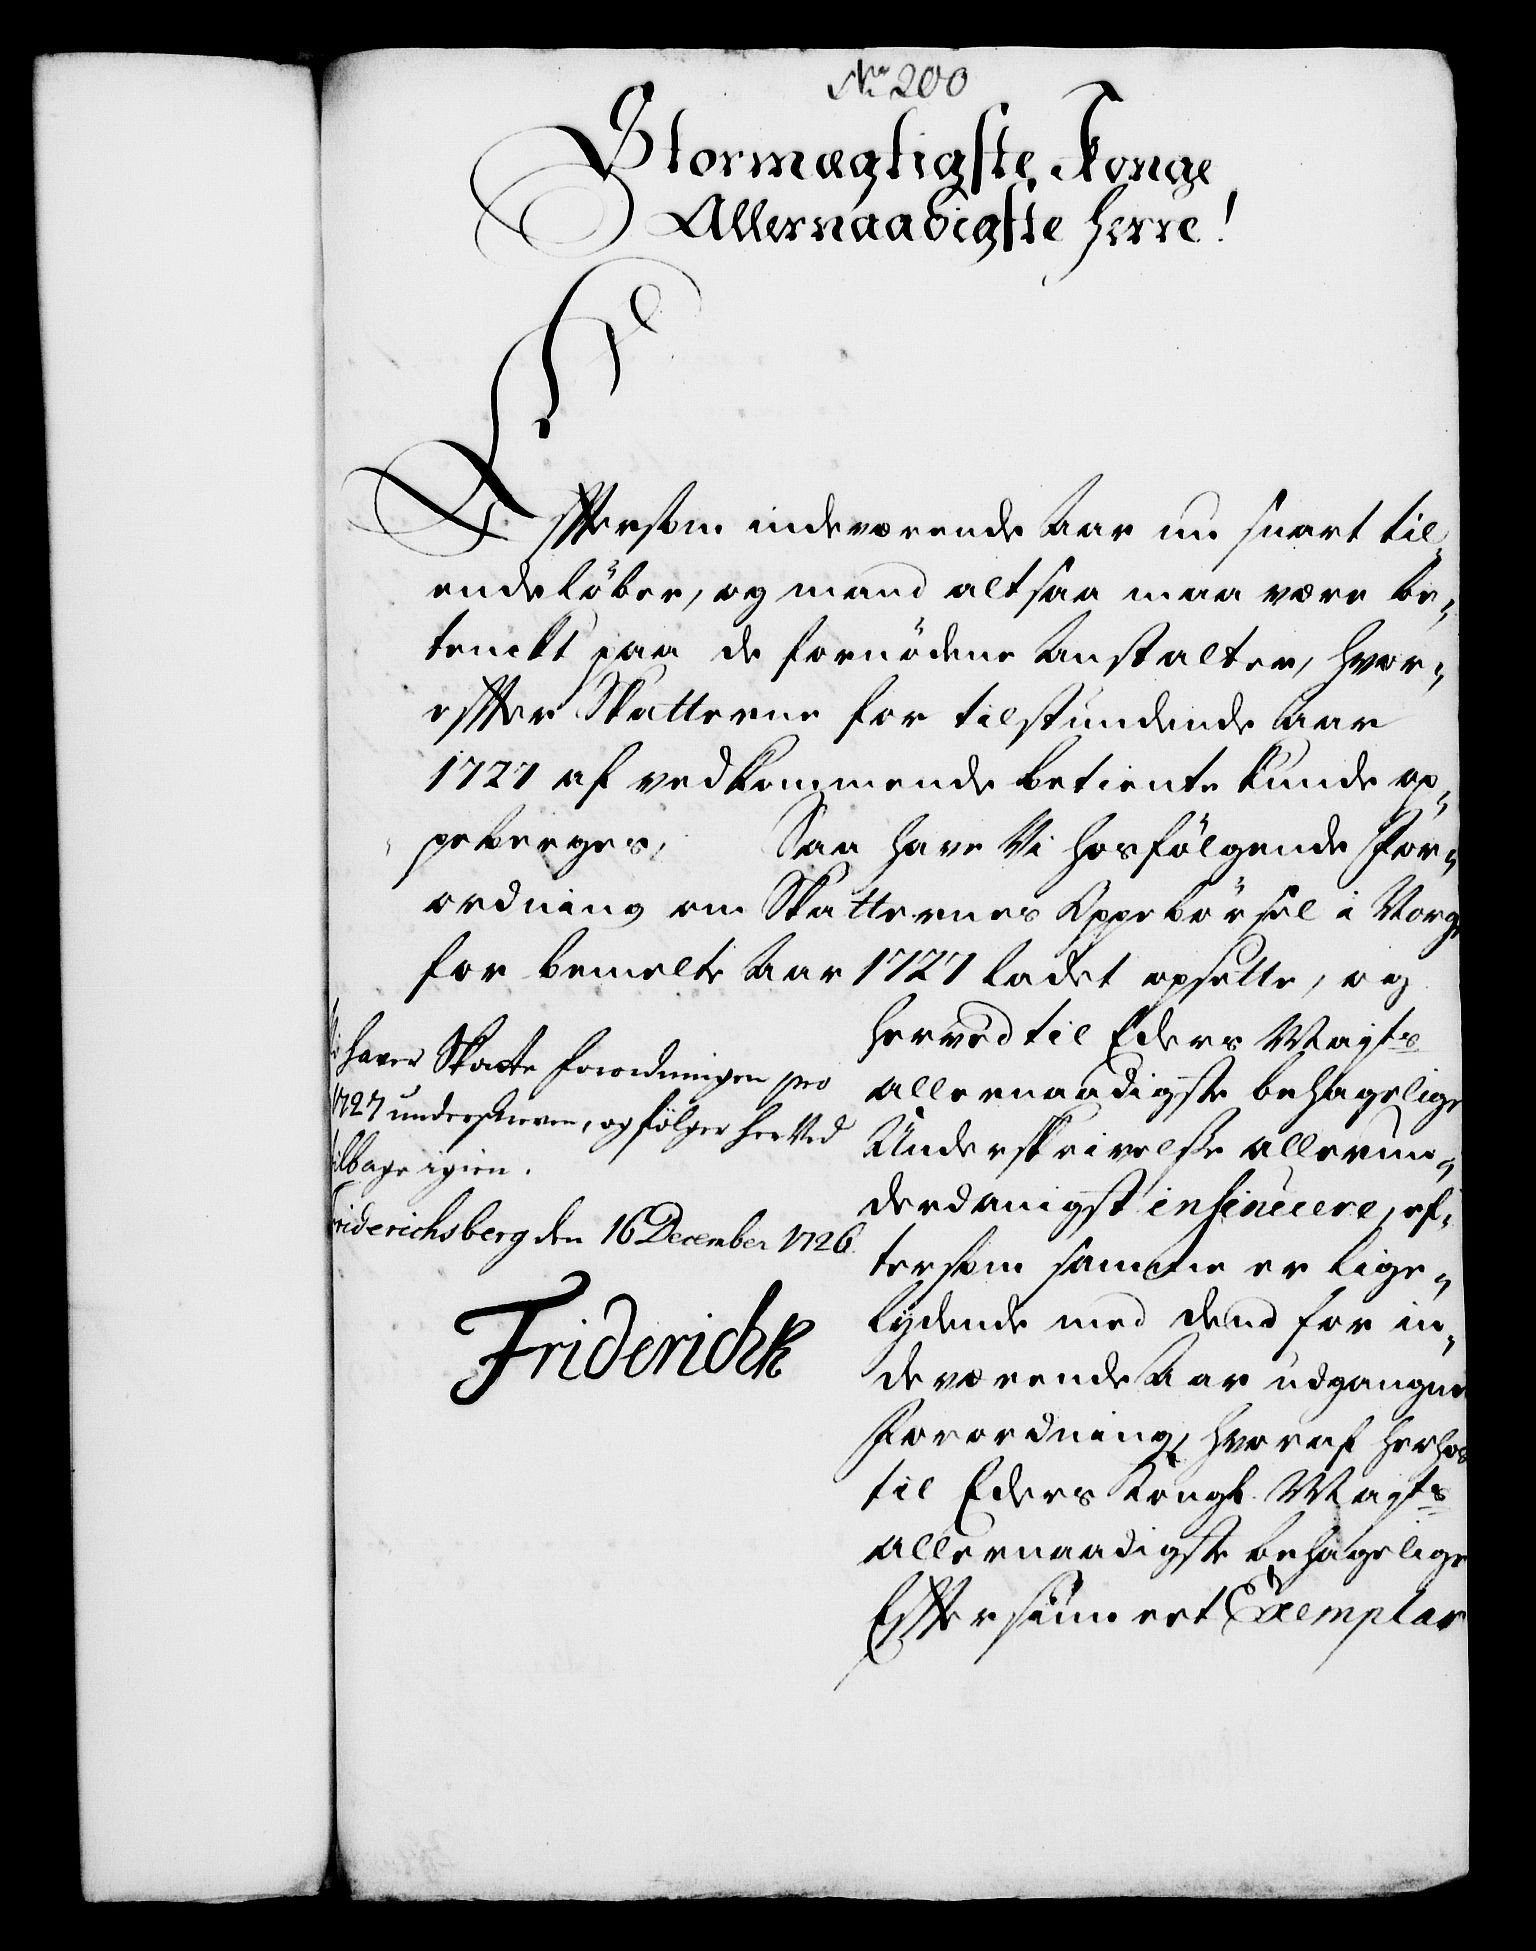 No 200
Stormægtigste Konge
Allernaadigste Herre!
Efftersom indeværende Aar nu snart til,
ende löber, og mand altsaa maa være be,,
tenckt paa de fornödene Anstalter, hvor,,
effter Skatterne for tilstundende Aar
1727 af vedkommende betiente kunde op,,
peberges, Saa have Vi hosfölgende For,,
ordning om Skatternes Oppebörsel i Norge
for bemelte Aar 1727 ladet opsette, og
herved til Eders Mayts
allernaadigste behagelige
Underskrivelse allerun,,
derdanigst insinuere, ef,
tersom samme er lige,,
lydende med dend for in,,
deværende Aar udgangne
Forordning, hvoraf herhos
til Eders Kongl. Mayts
allernaadigste behagelige
Efftersiun eet Exemplar
Vi haver Skatte forordningen pro
1727 underskreven, og fölger her ved
tilbage igien.
Friderichsberg den 16 December 1726.
FriderichR